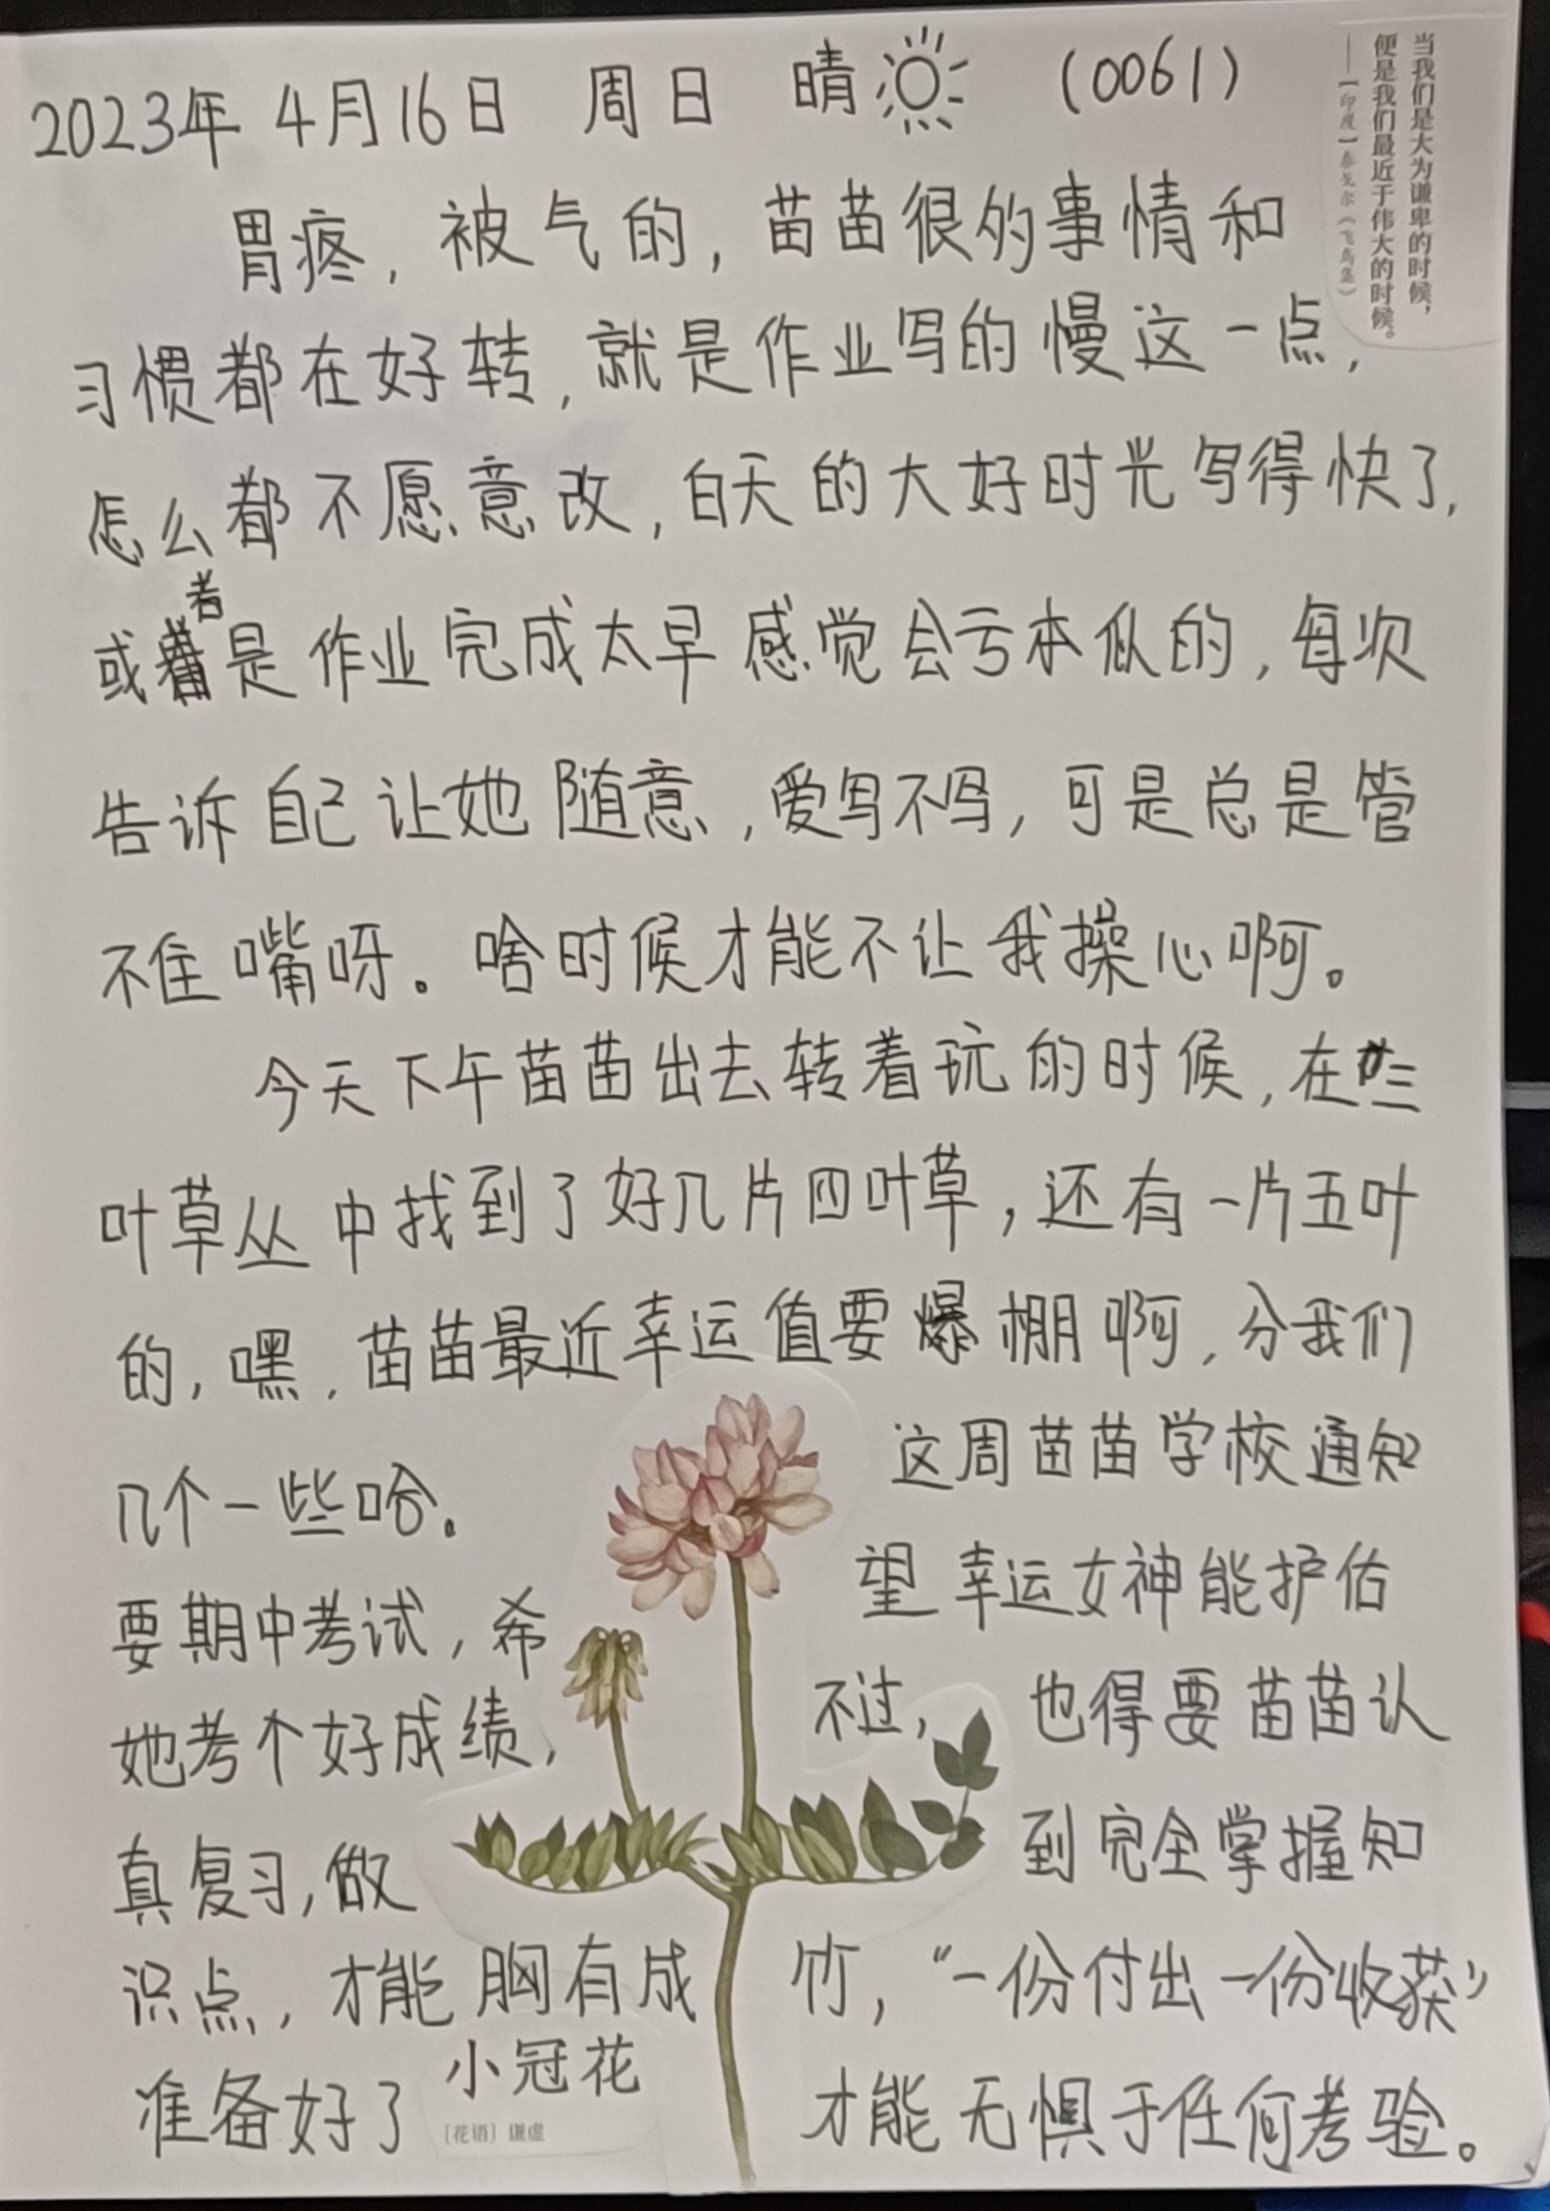 2023年 4月16日 周日 晴 (0061)
当我们是大为谦卑的时候，
便是我们最近于伟大的时候。
——【印度】泰戈尔《飞鸟集》
胃疼，被气的，苗苗很的事情和
习惯都在好转，就是作业写的慢这一点，
怎么都不愿意改，白天的大好时光写得快了，
或者是作业完成太早感觉会亏本似的，每次
告诉自己让她随意，爱写不写，可是总是管
不住嘴呀。啥时候才能不让我操心啊。
今天下午苗苗出去转着玩的时候，在三
叶草丛中找到了好几片四叶草，还有一片五叶
的，嘿，苗苗最近幸运值要爆棚啊，分我们
几个一些哈。 这周苗苗学校通知
要期中考试，希望幸运女神能护佑
她考个好成绩，不过，也得要苗苗认
真复习，做到完全掌握知
识点，才能胸有成竹，“一份付出一份收获”
准备好了才能无惧于任何考验。
小冠花
［花语］谦虚